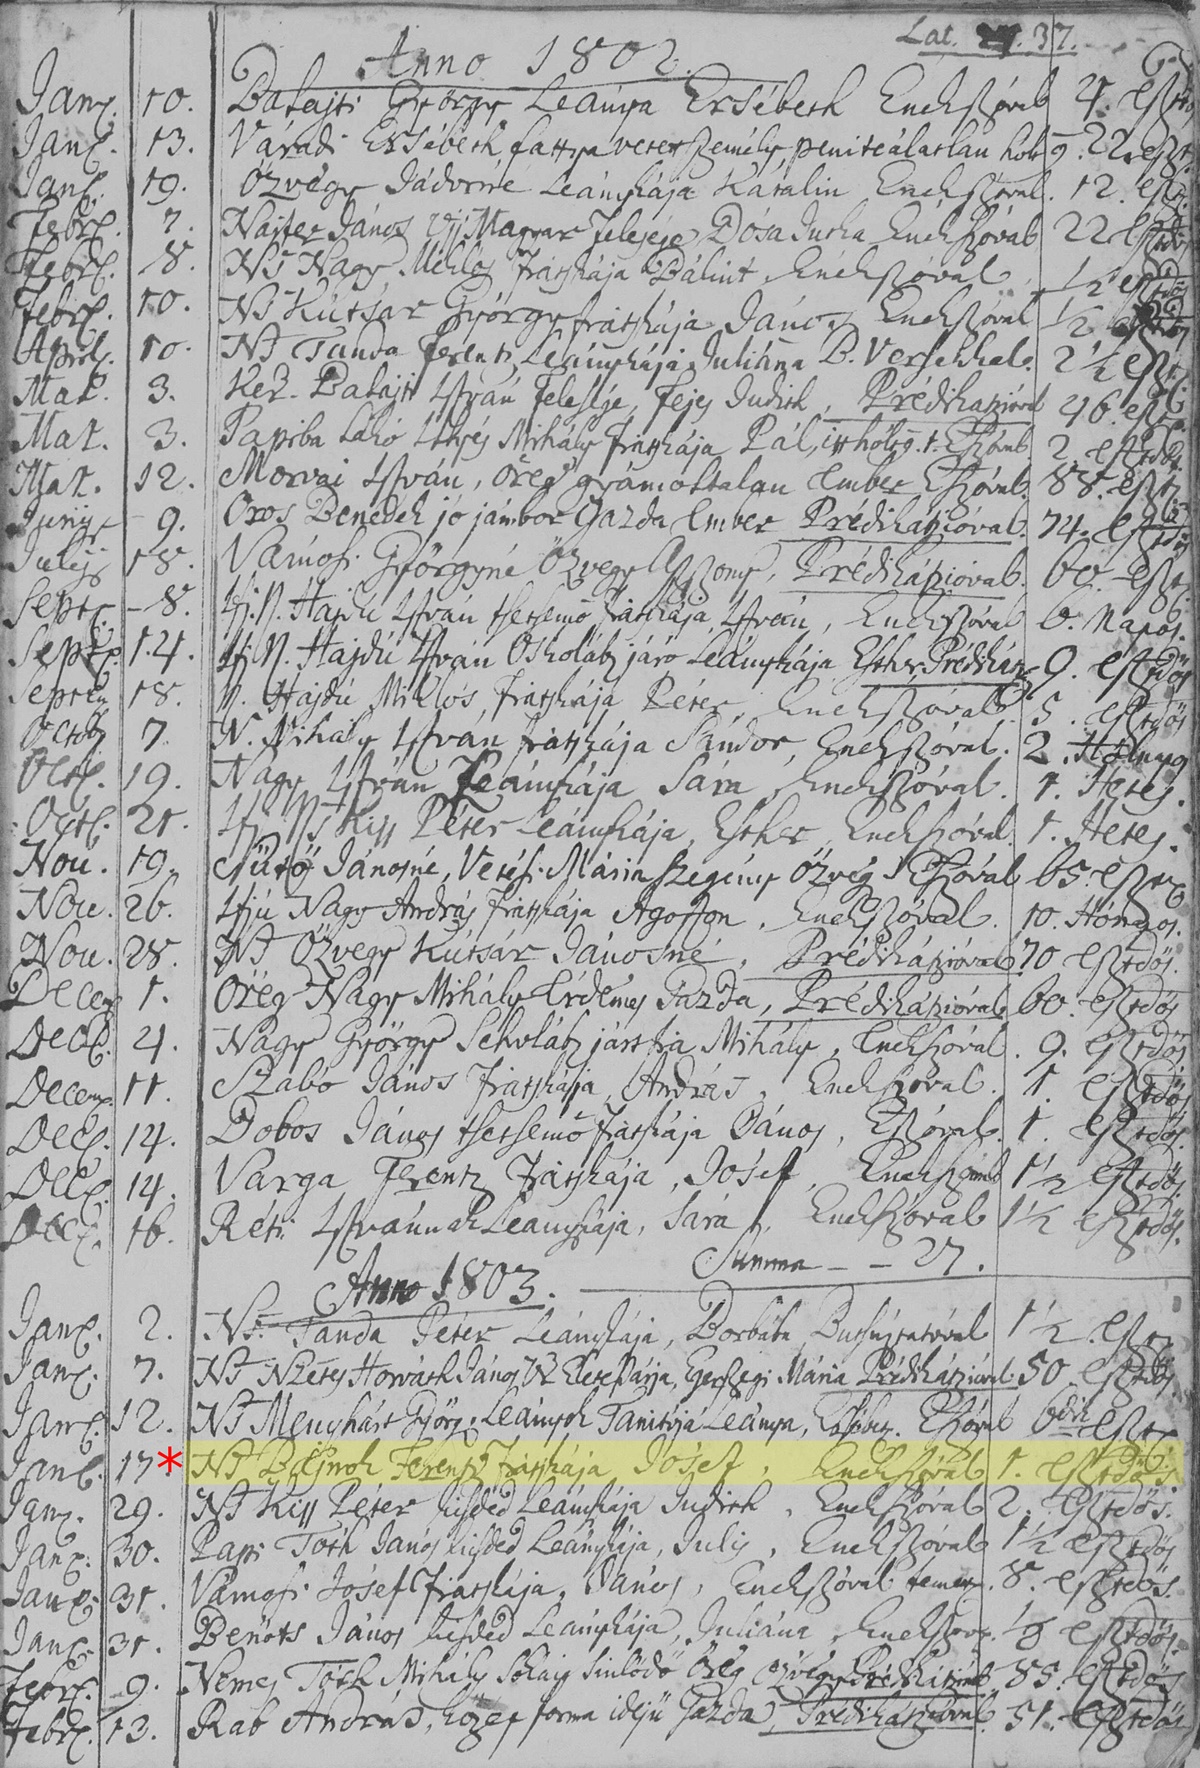 Lat. 37.
Anno 1802.
Jan. 10. Balajti György Leánya Ersébeth Énekszóval 4. eszt.
Jan. 13. Váradi Ersébeth, fattya vetett személy, peniteálatlan holt 22 eszt.
Jan. 19. Özvegy Leánykája Katalin Énekszóval. 12. esz.
Febr. 7. János Uj Magyar Felesége, Dósa Énekszóval 22 esztdős
Febr. 8. Ns Nagy Miklos fiatskája Bálint, Énekszóval 1/2 esztdős
Febr. 10. Ns Kutsár György fiatskája János, Énekszóval 1/2 esztdős
Apríl. 10. Nt Tanda Ferentz Leánykája Juliánna B. Versekkel. 2 1/2 eszt.
Mai. 3. Ker. Balajti István felesége, Fejes Judith, Prédikatzióval 46. eszt.
Mai. 3. Mihály fiatskája Pál, itt hólt Eszóval 2. esztdős
Mai. 12. Morvai Istvân, öreg gyámoltalan Ember Eszóval. 88. eszt.
Junij 9. Oros Benedek jó jámbor Gazda Ember Prédikátzióval. 74. esztdős
Julij 18. Vámosi Györgyné Özvegy Aszony, Prédikátzióval. 60. eszt.
Sept. - 8. Ifj. N. Hajdu Istvân tsetsemő fiatskája, Istvân, Énekszóval 6. Napos.
Sept. 14. Ifj. N. Hajdú Istvân Oskolába járó Leánykája Esther Prédikátz. 9. esztdős
Septem. 18. N. Hajdu Miklos, fiatskája Péter, Énekszóval. 5. esztdős
Octob. 7. N. Mihály Istvân fiatskája Sándor, Énekszóval. 2. Hólnap
Oct. 19. Nagy Istvân Leánykája Sára Énekszóval. 1. Hetes.
Oct. 21. Ifj. Ns Kiss Péter Leánykája, Esther, Énekszóval. 1. Hetes.
Nov. 19. Sütő Jánosné, Mária szegény Özvegy Eszóval 65. eszt.
Nov. 26. Ifjú Nagy András fiatskája Agoston, Énekszóval. 10. Hónapos.
Nov. 28. Nt Özvegy Kutsár Jánosné, Prédikátzióval 70 esztdős.
Decem. 1. Öreg Nagy Mihály Érdemes Gazda, Prédikátzióval. 60. esztdős
Dec. 4. Nagy György Scholába járt fia Mihály, Énekszóval. 9. esztdős
Decem. 11. Szabó János fiatskája, András, Énekszóval. 1. esztdős
Dec. 14. Dobos János tsetsemő fiatskája János, Eszóval. 1. esztdős.
Dec. 14. Varga Ferentz fiatskája, Jósef, Énekszóval 1 1/2 esztdős.
Dec. 16. Réti Istvânnak Leánykája, Sára, Énekszóval 1 1/2 esztdős.
Summa - - 27.
Anno 1803.
Jan. 2. Ns. Tanda Péter Leánykája, Borbála Butsúztatóval 1 1/2 eszt.
Jan. 7. Nt Nztes Horváth János Úr Élete Párja, Egerszegi Mária Prédikátzióval 50. esztdős.
Jan. 12. Nt Menyhárt Györg. Leányok Tanitója Leánya, Eszóval 6dik eszt.
Jan. 17 * Nt Ferentz fiatskája Jósef, Énekszóval 1. esztdős.
Jan. 29. Nt Kiss Péter kisded Leánykája Judith, Énekszóval 2. esztdős.
Jan. 30. Tóth János kisded Leánykája, Julis, Énekszóval 1 1/2 esztdős
Jan. 31. Vámosi Jósef fiatskája, János, Énekszóval temet. 8. esztdős.
Jan. 31. János kisded Leánykája, Juliána, Énekszóv. esztdős.
Febr. 9. Nemes Tóth Mihály Sokáig Sinlődő Öreg özvegy Prédikátzióval. 85. esztdős
Febr. 13. Rab András, közép forma idejű Gazda, Prédikátzióval. 51. esztdős